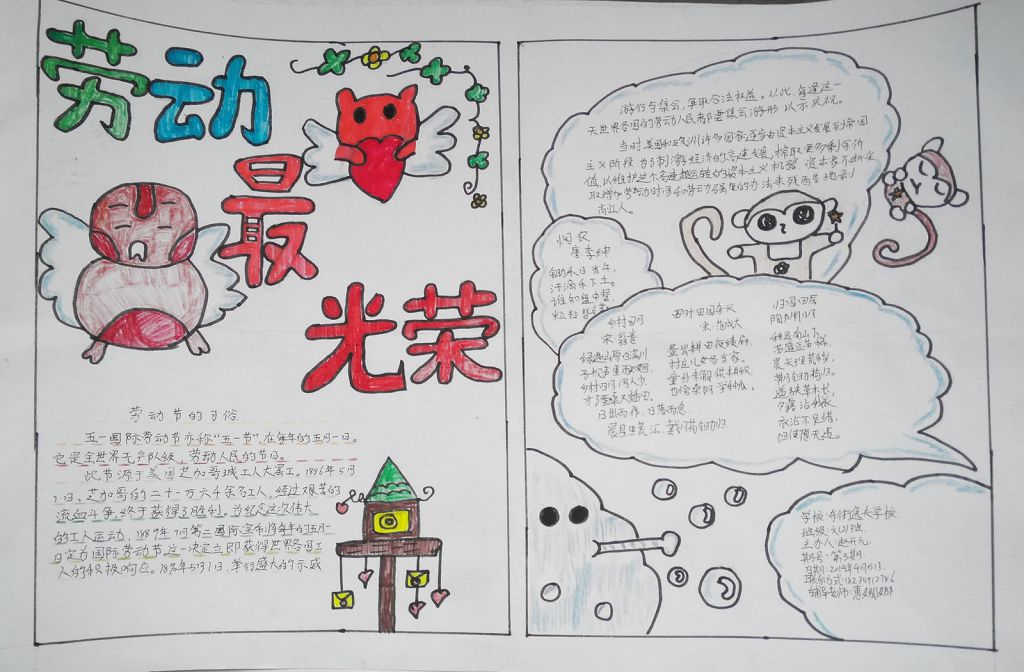 劳动
最
光荣
劳动节的习俗
五一国际劳动节亦称"五一节",在每年的五月一日。
它是全世界无产阶级、劳动人民的节日。
此节源于美国芝加哥城工人大罢工。1886年5月
1日,芝加哥的二十一万六千余名工人,经过艰苦的
流血斗争,终于获得了胜利。为纪念这次伟大
的工人运动,1889年7月第二国际宣布将每年的五月一
日定为国际劳动节。这一决定立即获得世界各国工
人的积极响应。1890年5月1日,举行盛大的示威
游行与集会,争取合法权益。从此,每逢这一
天世界各国的劳动人民都要集会游形以示庆祝。
当时,美国和欧洲许多国家逐步由资本主义发展到帝国
主义阶段,为了刺激经济的高速发展,榨取更多剩余价
值,以维护这个高速运转的资本主义机器,资本家不断采
取增加劳动时间和劳动强度的办法来残酷地剥
削工人。
悯农
唐 李绅
锄禾日当午,
汗滴禾下土。
谁知盘中餐,
粒粒皆辛苦
乡村四月
宋 翁卷
绿遍山原白满川
子规声里雨如烟
乡村四月闲人少
才了蚕桑又插田
日出而作,日落而息
晨兴理荒秽 戴月荷锄归
四时田园杂兴
宋 范成大
昼出耕田夜绩麻,
村庄儿女各当家。
童孙未解供耕织,
也傍桑阴学种瓜。
归园田居
陶渊明
种豆南山下,
草盛豆苗稀。
晨兴理荒秽,
带月荷锄归。
道狭草木长,
夕露沾我衣
衣沾不足惜,
但使愿无违。
学校:
班级:六(2)班
主办人:赵开元
期号:第3期
日期:2019年4月5日
联系方式:18235912786
辅导老师: